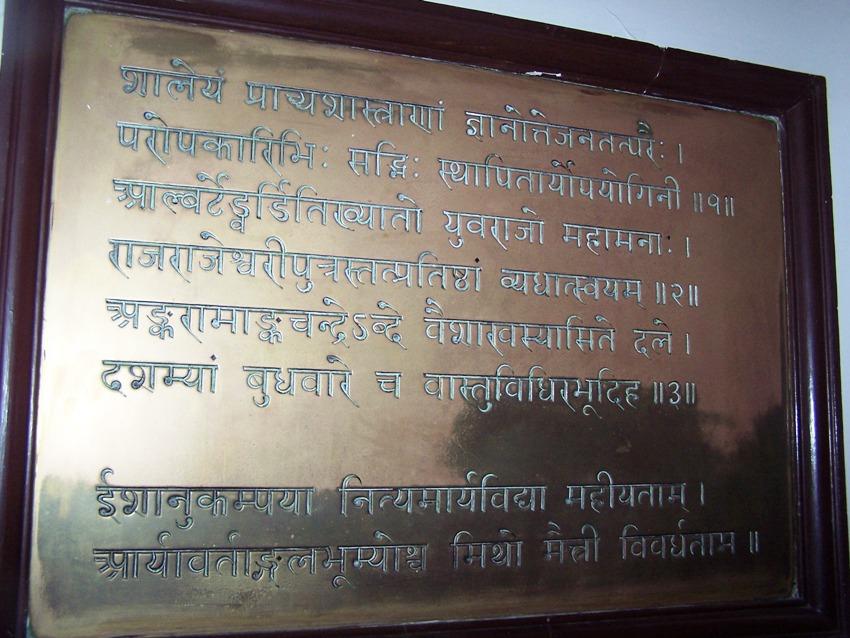 शालेयं प्राच्यशास्त्राणां ज्ञानोत्तेजनतत्परैः ।
परोपकारिभिः सद्भिः स्थापितार्योपयोगिनी ॥१॥
आल्बर्टेड्वर्डितिख्यातो युवराजो महामनाः ।
राजराजेश्वरीपुत्रस्तत्प्रतिष्ठां व्यधात्स्वयम् ॥२॥
अङ्करामाङ्कचन्द्रेऽब्दे वैशाखस्यासिते दले ।
दशम्यां बुधवारे च वास्तुविधिरभूदिह ॥३॥
ईशानुकम्पया नित्यमार्यविद्या महीयताम् ।
आर्यावर्ताङ्गलभूम्योश्च मिथो मैत्री विवर्धताम ॥